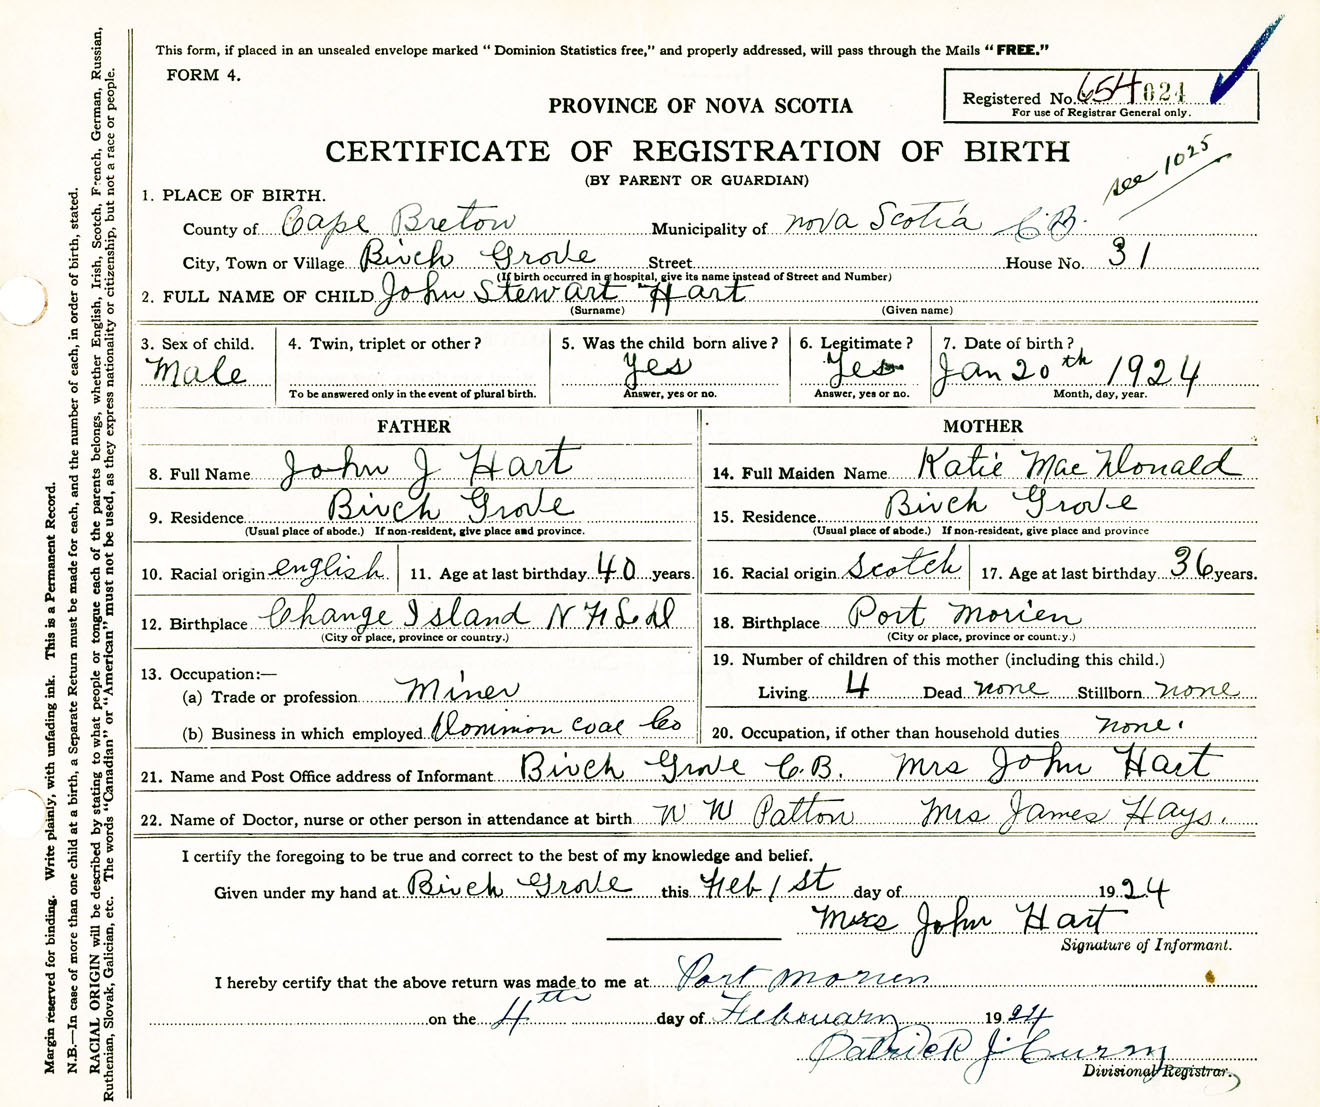 This form, if placed in an unsealed envelope marked "Dominion Statistics free," and properly addressed, will pass through the Mails "FREE."
FORM 4.
Registered No. 654024
For use of Registrar General only.
PROVINCE OF NOVA SCOTIA
CERTIFICATE OF REGISTRATION OF BIRTH
(BY PARENT OR GUARDIAN)
see 1025
1. PLACE OF BIRTH.
County of Cape Breton Municipality of Nova Scotia C.B.
City, Town or Village Birch Grove Street House No. 31
(If birth occurred in a hospital, give its name instead of Street and Number)
2. FULL NAME OF CHILD John Stewart Hart
(Surname) (Given name)
3. Sex of child. 4. Twin, triplet or other? 5. Was the child born alive? 6. Legitimate? 7. Date of birth?
Male Yes Yes Jan 20th 1924
To be answered only in the event of plural birth. Answer, yes or no. Answer, yes or no. Month, day, year.
FATHER MOTHER
8. Full Name John J Hart 14. Full Maiden Name Katie MacDonald
9. Residence Birch Grove 15. Residence Birch Grove
(Usual place of abode.) If non-resident, give place and province. (Usual place of abode.) If non-resident, give place and province
10. Racial origin english 11. Age at last birthday 40 years. 16. Racial origin Scotch 17. Age at last birthday 36 years.
12. Birthplace Change Island NFLdd 18. Birthplace Port Morien
(City or place, province or country.) (City or place, province or country.)
13. Occupation:— 19. Number of children of this mother (including this child.)
(a) Trade or profession Miner Living 4 Dead none Stillborn none
(b) Business in which employed Dominion Coal Co 20. Occupation, if other than household duties none.
21. Name and Post Office address of Informant Birch Grove C.B. Mrs John Hart
22. Name of Doctor, nurse or other person in attendance at birth W W Patton Mrs James Hays.
I certify the foregoing to be true and correct to the best of my knowledge and belief.
Given under my hand at Birch Grove this Feb 1st day of 1924
Mrs John Hart
Signature of Informant.
I hereby certify that the above return was made to me at Port Morien
on the 4th day of February 1924
Patrick J. Curry
Divisional Registrar.
Margin reserved for binding. Write plainly, with unfading ink. This is a Permanent Record.
N.B.—In case of more than one child at a birth, a Separate Return must be made for each, and the number of each, in order of birth, stated.
RACIAL ORIGIN will be described by stating to what people or tongue each of the parents belongs, whether English, Irish, Scotch, French, German, Russian,
Ruthenian, Slovak, Galician, etc. The words "Canadian" or "American" must not be used, as they express nationality or citizenship, but not a race or people.